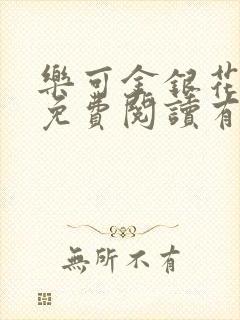 樂可金銀花
免費閱讀有
無所不有